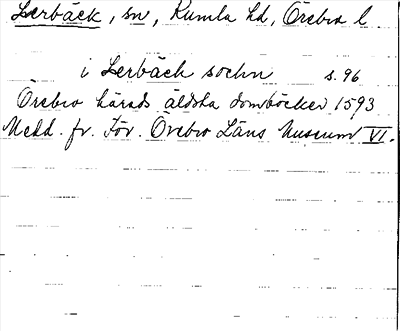 Lerbäck, sn, Kumla hd, Örebro l.
i Lerbäck sochn s. 96
Örebro härads äldsta domböcker 1593
Medd. fr. För. Örebro Läns Museum VI.